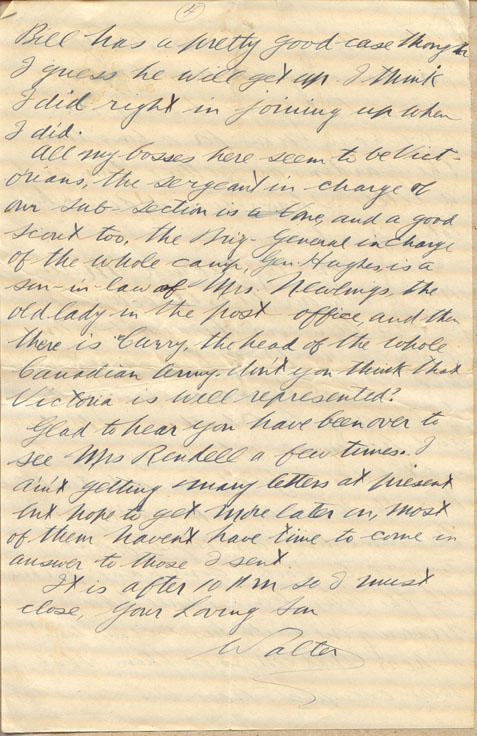 4
Bill has a pretty good case though
I guess he will get up. I think
I did right in joining up when
I did.
All my bosses here seem to be Vict-
orians, the sergeant in charge of
our sub-section is a one, and a good
scout too, the Brig-General in charge
of the whole camp, Gen. Hughes is a
son-in-law of Mrs. Newlings, the
old lady in the post office, and then
there is Curry, the head of the whole
Canadian Army. don't you think that
Victoria is well represented?
Glad to hear you have been over to
see Mrs Rendell a few times. I
ain't getting many letters at present
but hope to get more later on, most
of them haven't have time to come in
answer to those I sent.
It is after 10 PM so I must
close, Your Loving Son
Walter